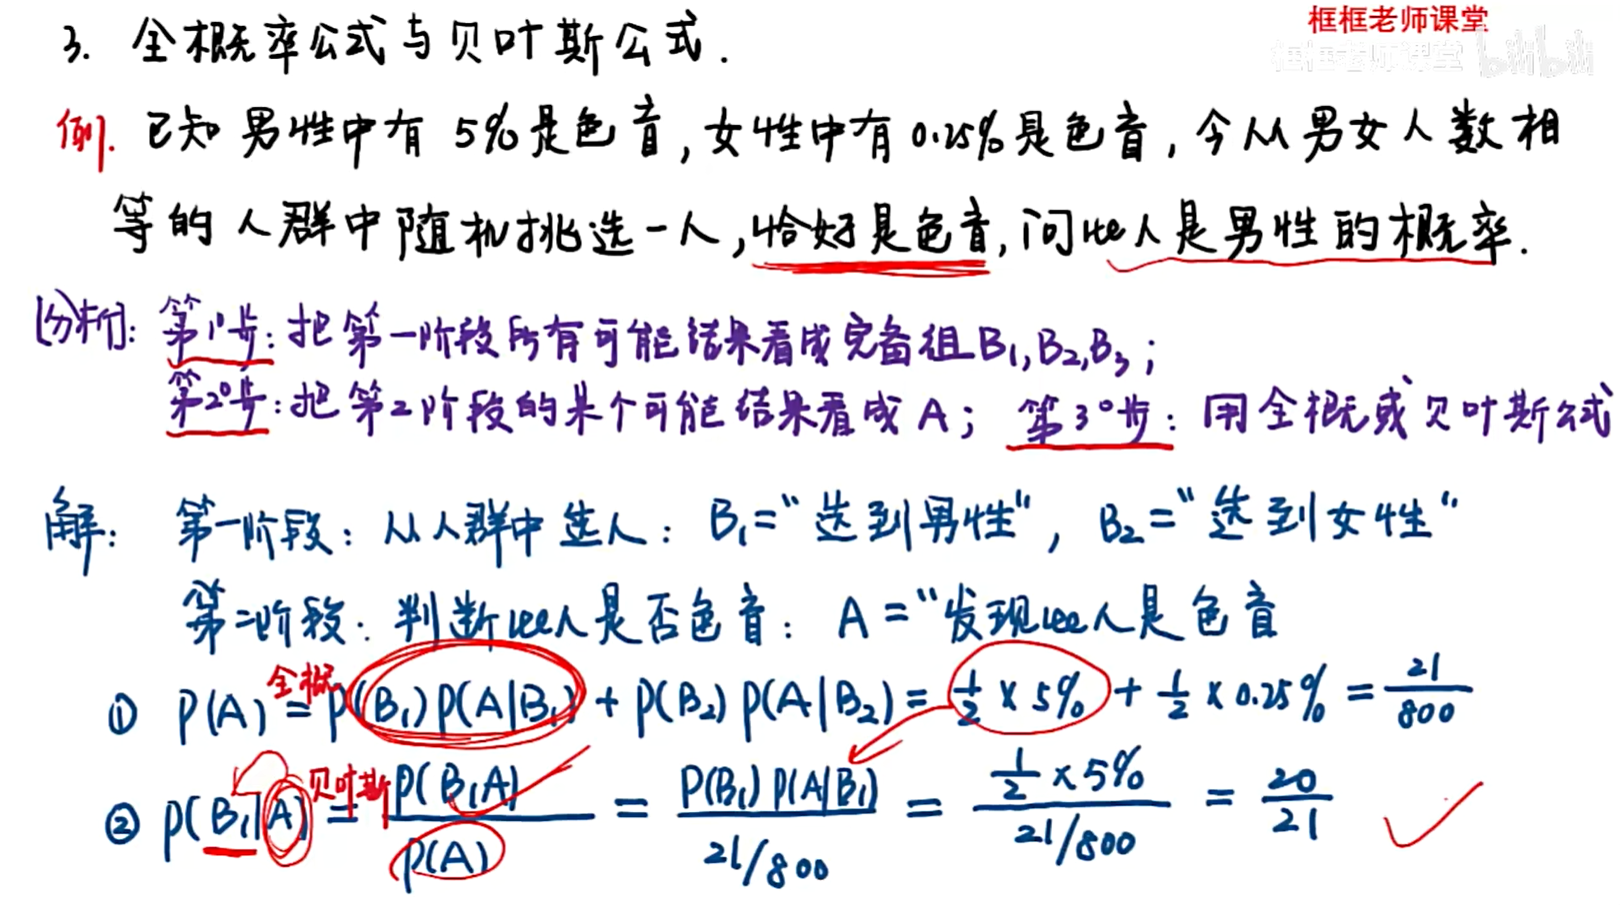 框框老师课堂
框框老师课堂 bilibili
3. 全概率公式与贝叶斯公式.
例. 已知男性中有 5% 是色盲, 女性中有 0.25% 是色盲, 今从男女人数相
等的人群中随机挑选一人, 恰好是色盲, 问此人是男性的概率.
[分析]: 第1°步: 把第一阶段所有可能结果看成完备组 B₁, B₂, B₃;
第2°步: 把第2阶段的某个可能结果看成 A; 第3°步: 用全概或贝叶斯公式
解: 第一阶段: 从人群中选人: B₁="选到男性", B₂="选到女性"
第二阶段: 判断此人是否色盲: A="发现此人是色盲
① P(A) 全概 = P(B₁)P(A|B₁) + P(B₂)P(A|B₂) = 1/2 × 5% + 1/2 × 0.25% = 21/800
② P(B₁|A) 贝叶斯 = P(B₁A)/P(A) = P(B₁)P(A|B₁)/(21/800) = (1/2 × 5%)/(21/800) = 20/21